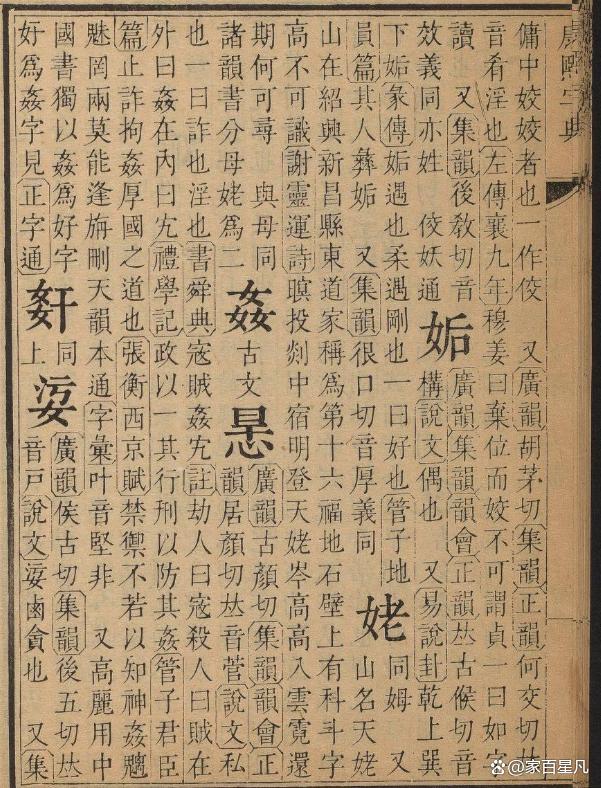 康熙字典
傭中姣姣者也一作佼 又廣韻胡茅切集韻正韻何交切𠀤
音肴淫也左傳襄九年穆姜曰棄位而姣不可謂貞一曰如字
讀 又集韻後敎切音
效義同亦姓 佼妖通
姤
廣韻集韻韻會正韻𠀤古候切音
構說文偶也 又易說卦乾上巽
下姤彖傳姤遇也柔遇剛也一曰好也管子地
員篇其人彝姤 又集韻很口切音厚義同
姥
同姆 又
山名天姥
山在紹興新昌縣東道家稱爲第十六福地石壁上有科斗字
高不可識謝靈運詩暝投剡中宿明登天姥岑高高入雲霓還
期何可尋 與母同
諸韻書分母姥爲二
姦
古文
𢙶
廣韻古顏切集韻韻會正
韻居顏切𠀤音菅說文私
也一曰詐也淫也書舜典寇賊姦宄註劫人曰寇殺人曰賊在
外曰姦在內曰宄禮學記政以一其行刑以防其姦管子君臣
篇止詐拘姦厚國之道也張衡西京賦禁禦不若以知神姦魑
魅罔兩莫能逢旃刪天韻本通字彙叶音堅非 又高麗用中
國書獨以姦爲好字
奸爲姦字見正字通
奸
同
上
㛂
廣韻侯古切集韻後五切𠀤
音戸說文㛂鹵貪也 又集
@家百星凡